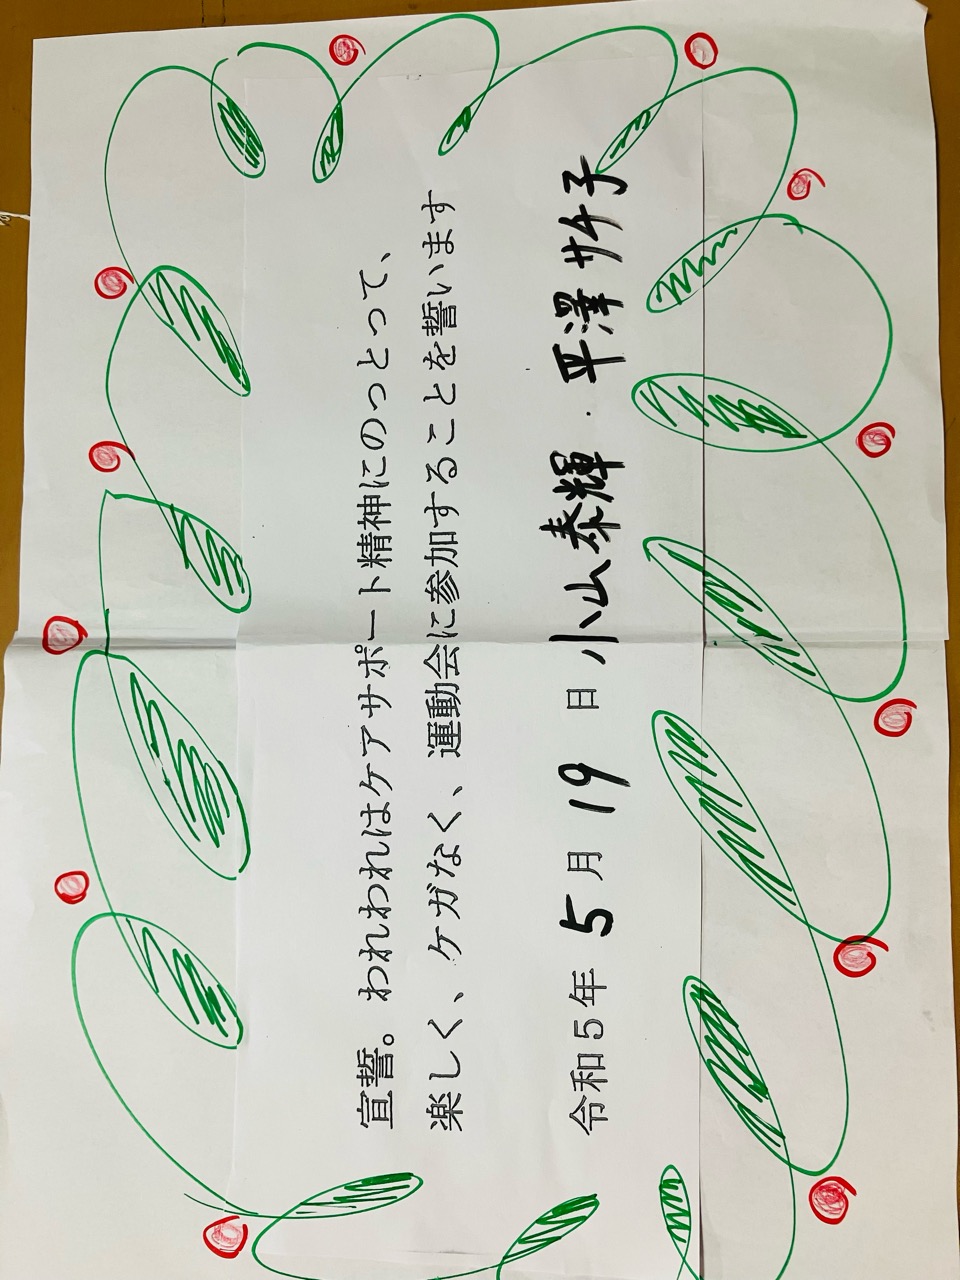 宣誓。われわれはケアサポート精神にのっとって、
楽しく、ケガなく、運動会に参加することを誓います
令和５年 5月 19日 小山泰輝・平澤サチ子